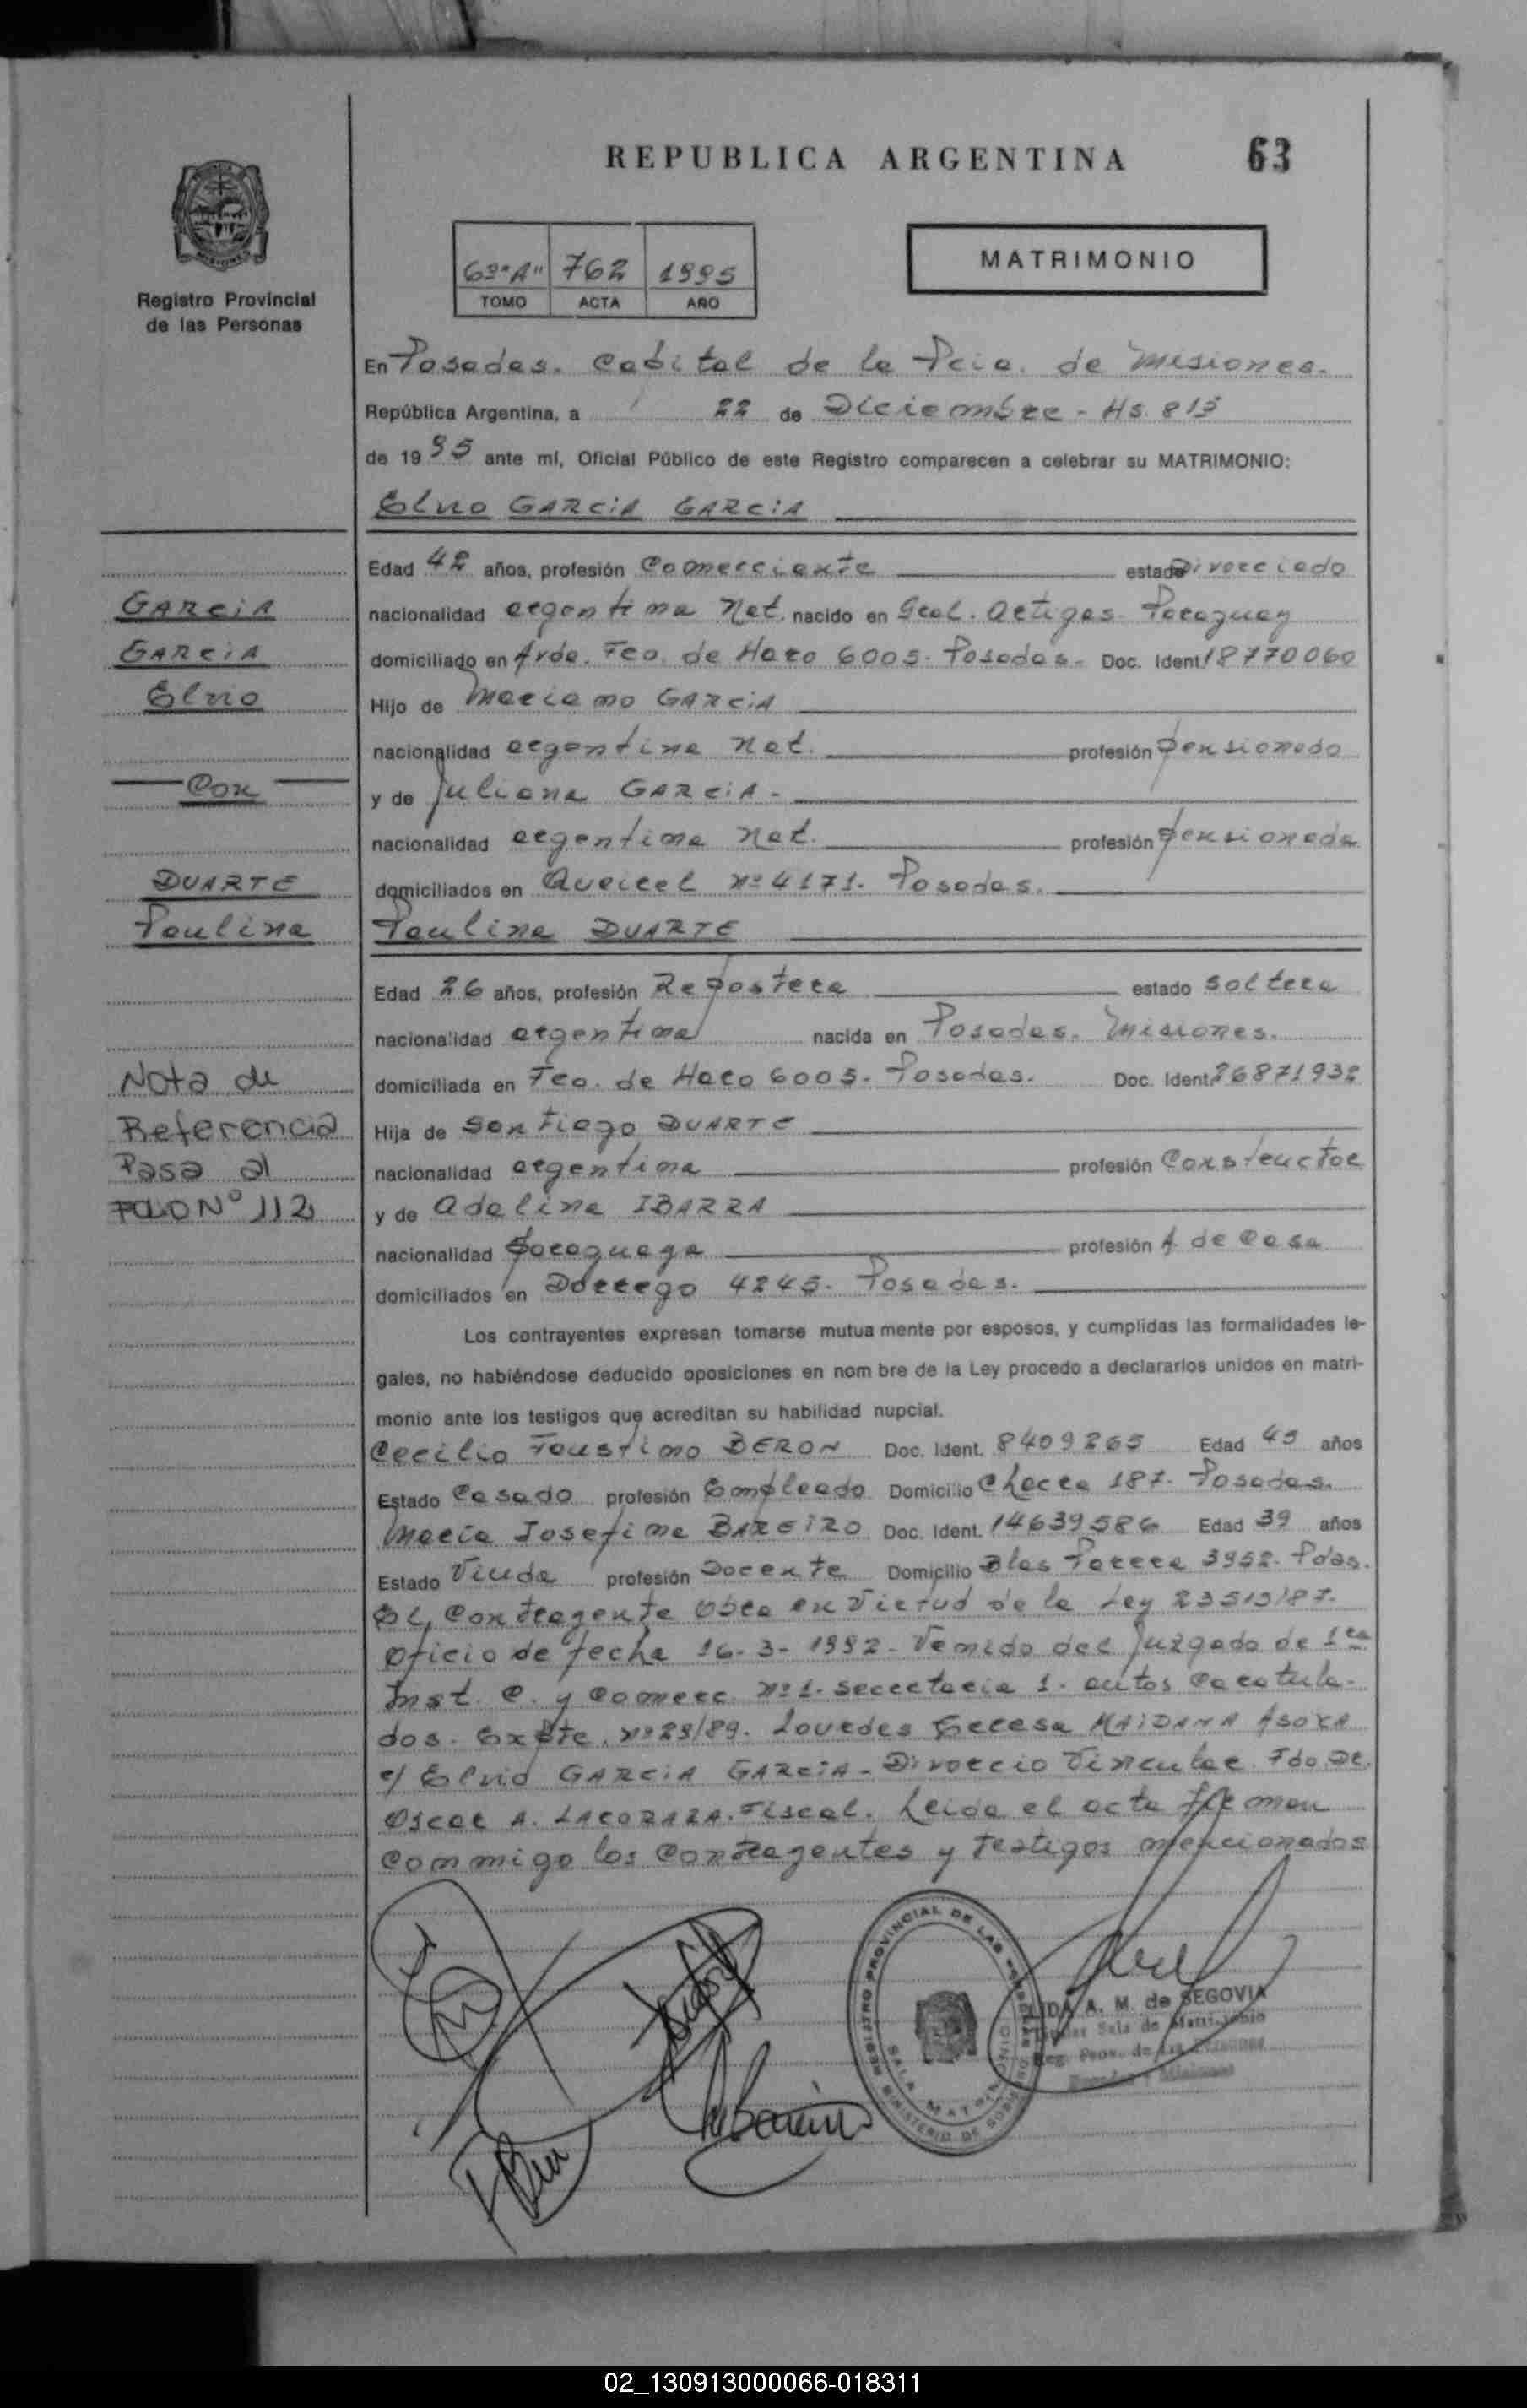 REPUBLICA ARGENTINA
63
Registro Provincial
de las Personas
6º "A" 762 1995
TOMO ACTA AÑO
MATRIMONIO
En Posadas. Capital de la Pcia. de Misiones.
República Argentina, a 22 de Diciembre - Hs. 815
de 1995 ante mí, Oficial Público de este Registro comparecen a celebrar su MATRIMONIO:
Elvio GARCIA GARCIA
Edad 42 años, profesión Comerciante estado Divorciado
nacionalidad argentina Nat. nacido en Gral. Artigas Paraguay
domiciliado en Avda. Fco. de Haro 6005. Posadas. Doc. Ident. 18770060
Hijo de Marciano GARCIA
nacionalidad argentina Nat. profesión pensionado
y de Juliana GARCIA.
nacionalidad argentina Nat. profesión pensionada
domiciliados en Queirel Nº 4171. Posadas.
Paulina DUARTE
Edad 26 años, profesión Repostera estado soltera
nacionalidad argentina nacida en Posadas. Misiones.
domiciliada en Fco. de Haro 6005. Posadas. Doc. Ident. 26871932
Hija de Santiago DUARTE
nacionalidad argentina profesión Constructor
y de Adelina IBARRA
nacionalidad paraguaya profesión A. de Casa
domiciliados en Dorrego 4245. Posadas.
Los contrayentes expresan tomarse mutua mente por esposos, y cumplidas las formalidades le-
gales, no habiéndose deducido oposiciones en nom bre de la Ley procedo a declararlos unidos en matri-
monio ante los testigos que acreditan su habilidad nupcial.
Cecilio Faustino BERON Doc. Ident. 8409265 Edad 45 años
Estado Casado profesión Empleado Domicilio Chacra 187. Posadas.
Maria Josefina BAREIRO Doc. Ident. 14639586 Edad 39 años
Estado Viuda profesión Docente Domicilio Blas Parera 3952. Pdas.
El Contrayente obra en Virtud de la Ley 23515/87.
Oficio de fecha 16-3-1992. Venido del Juzgado de 1ra
Inst. C. y Comerc. Nº 1. Secretaria 1. autos Caratula-
dos. Expte. Nº 23/89. Lourdes Teresa MAIDANA
c/ Elvio GARCIA GARCIA. Divorcio Vincular. Fdo. Dr.
Oscar A. LACORAZA. Fiscal. Leida el acta firman
conmigo los Contrayentes y Testigos mencionados
GARCIA
GARCIA
Elvio
Con
DUARTE
Paulina
Nota de
Referencia
Pasa al
FOLIO Nº 112
REGISTRO PROVINCIAL DE LAS PERSONAS
SALA MATRIMONIO
MINISTERIO DE GOBIERNO
A. M. de SEGOVIA
Titular Sala de Matrimonio
Reg. Prov. de las Personas
Posadas - Misiones
02_130913000066-018311